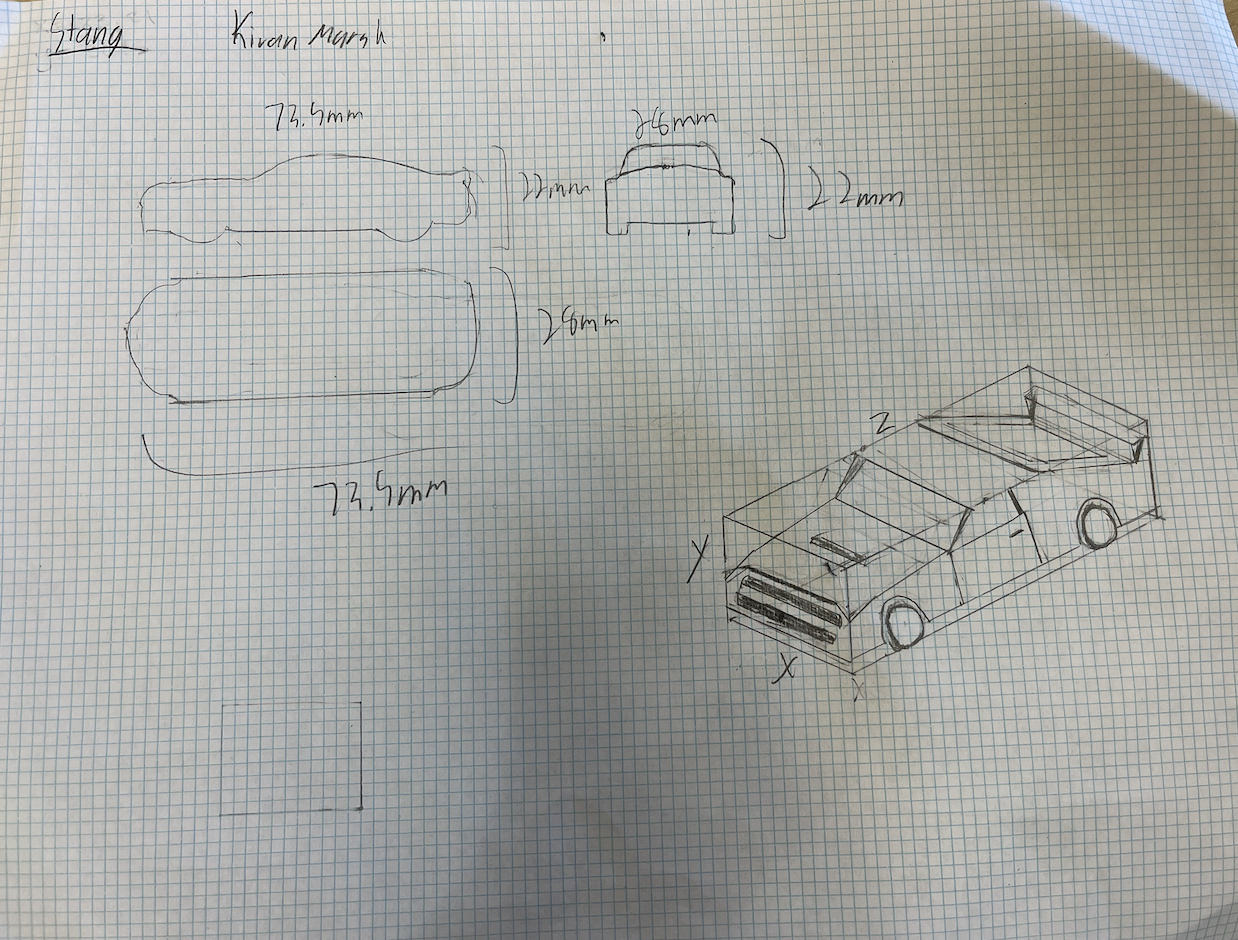 Stang Kivan Marsh
73.5mm
28mm
22mm
22mm
28mm
73.5mm
Z
Y
X
X